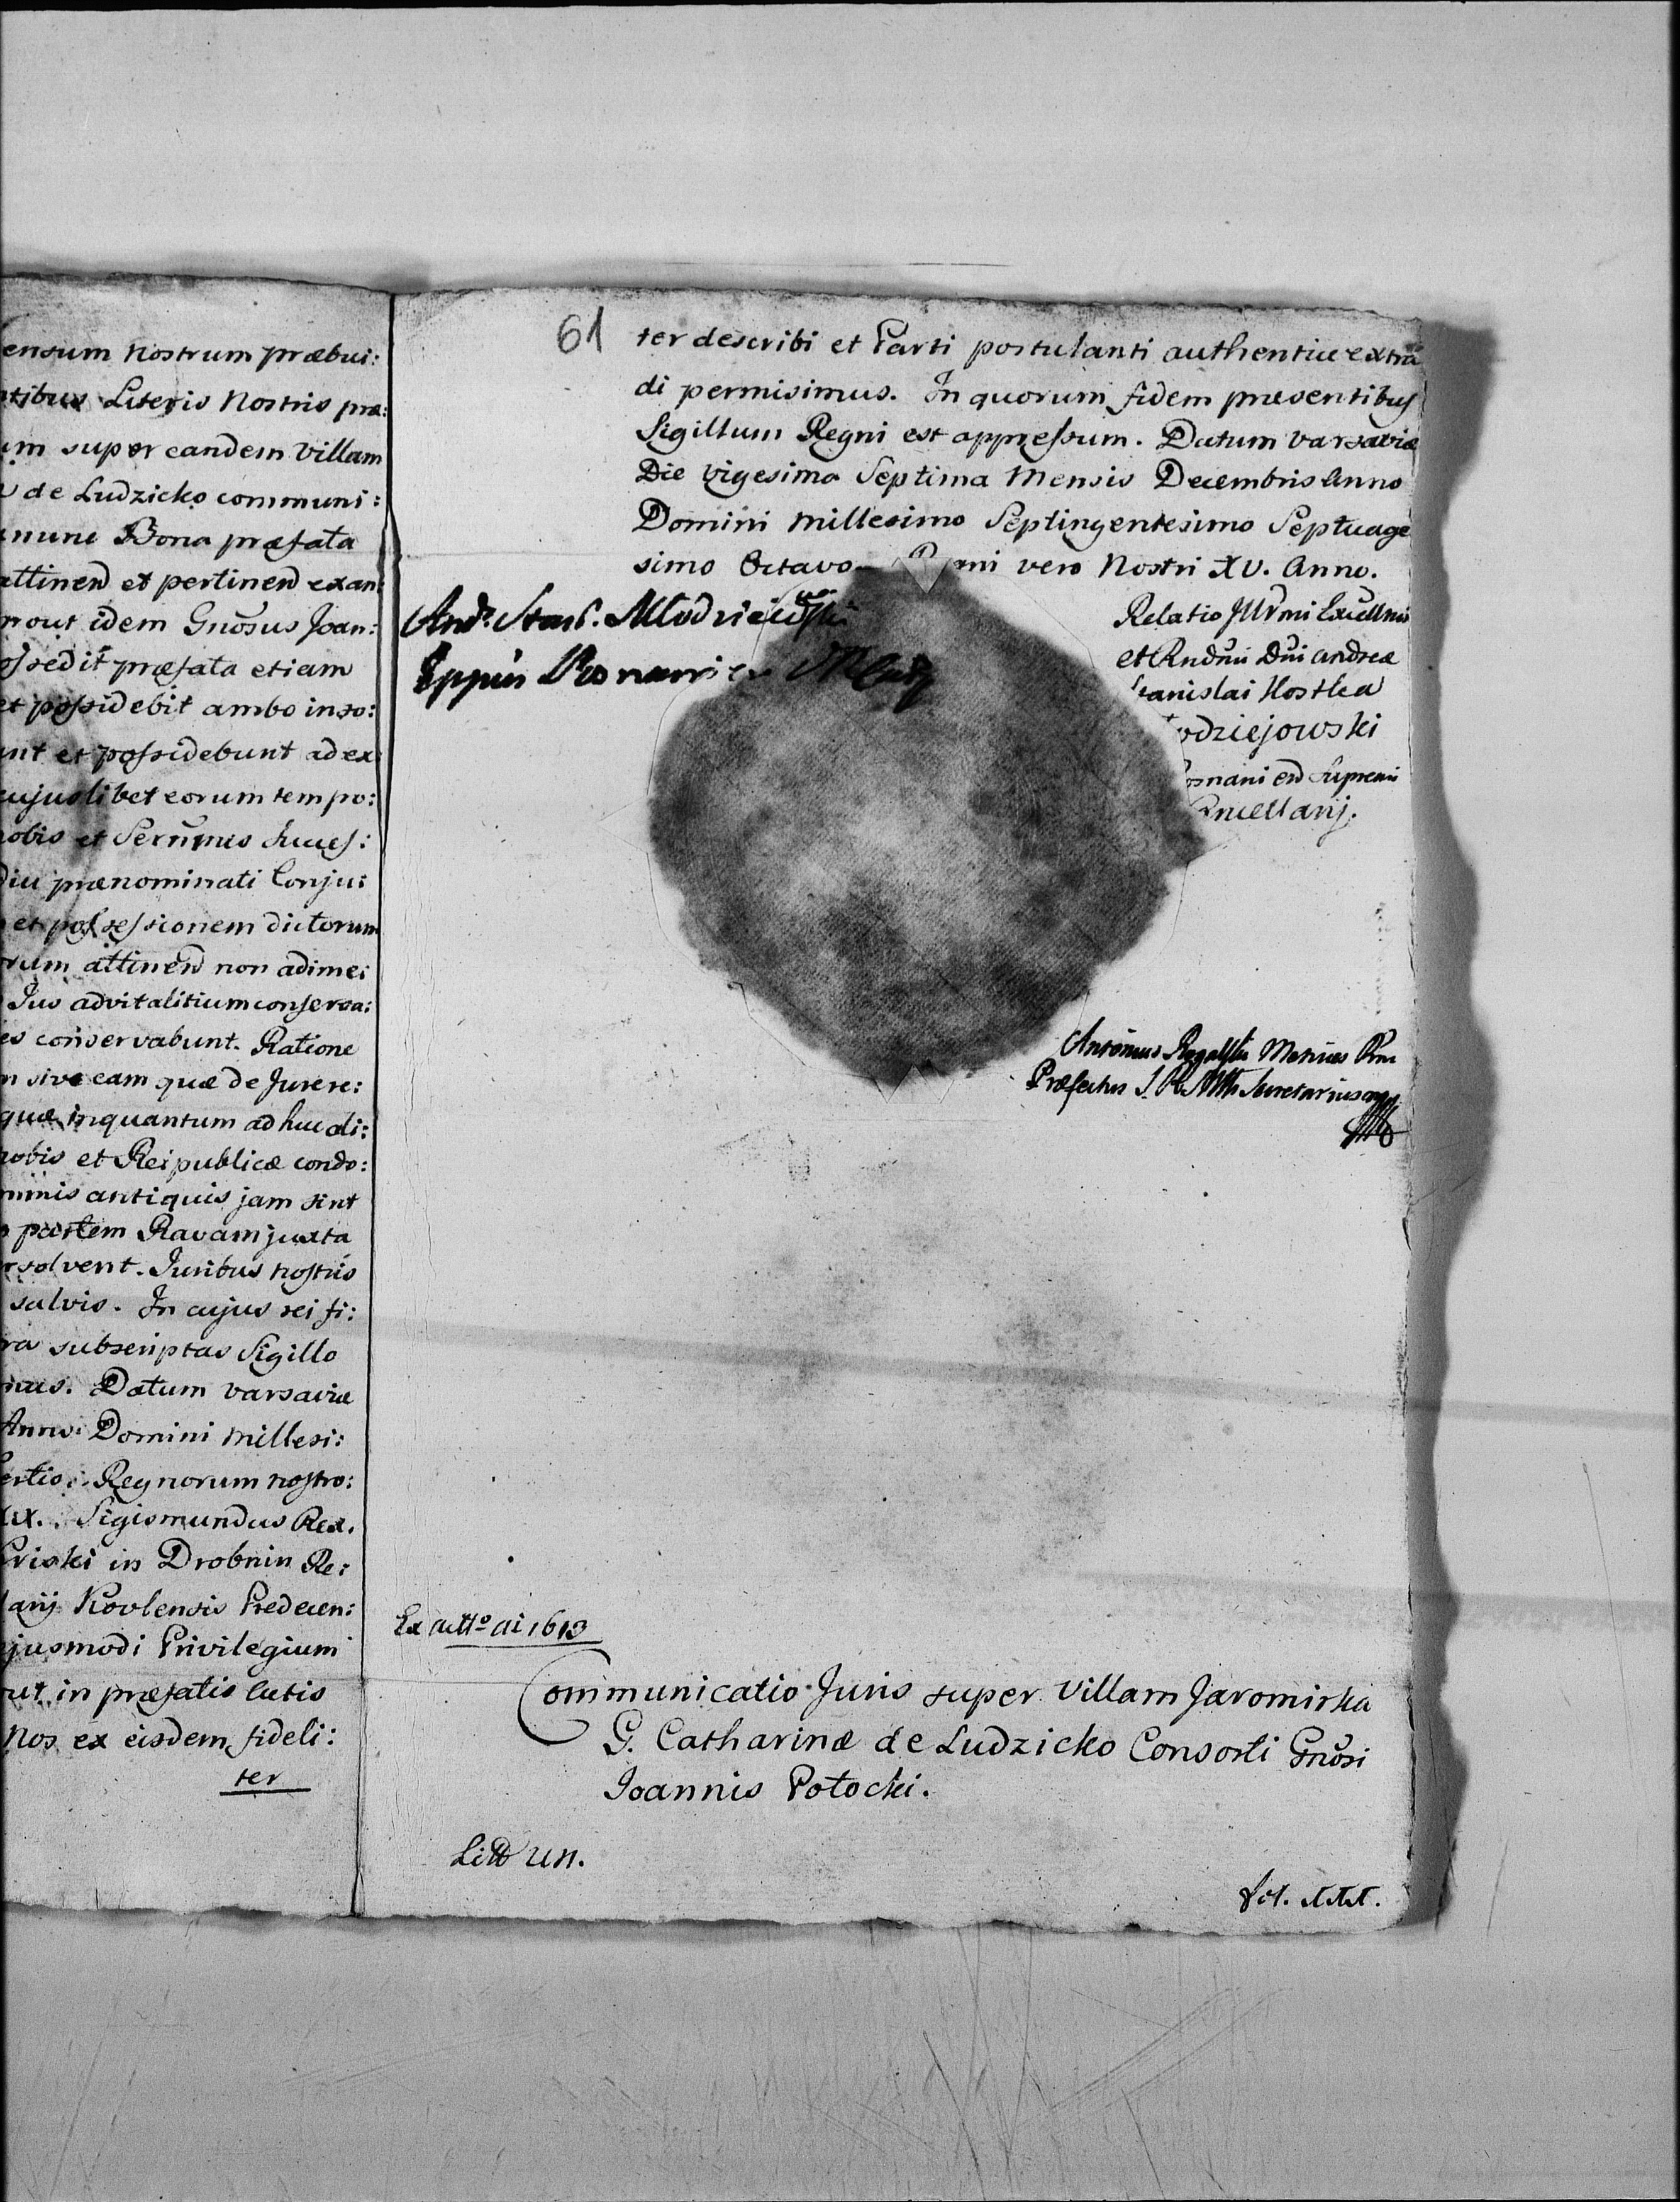 ensum Nostrum præbui:
ntibus Literis Nostris præ:
um super eandem Villam
de Ludzicko communi:
mune Bona præfata
attinen et pertinen exan:
prout idem Gnosus Joan:
ossedit præfata etiam
et possidebit ambo inso:
unt et possidebunt ad ex
cujuslibet eorum tempo:
nobis et Serñmis Succes:
diu prænominati Conju:
et possessionem dictorum
orum attinen non adime:
Jus advitalitium conserva:
es conservabunt. Ratione
n sive eam quæ de Jure re:
quæ inquantum ad huc di:
nobis et Reipublicæ condo:
minis antiquis jam sint
partem Ravam juxta
rsolvent. Juribus nostris
salvis. In cujus rei fi:
ra subscriptas Sigillo
mus. Datum Varsaviæ
Anno Domini Millesi:
ertio. Regnorum nostro:
XIX. Sigismundus Rex.
Criski in Drobnin Re:
larij Kovlensis Predecen:
jusmodi Privilegium
out in præfatis Actis
Nos ex eisdem fideli:
ter
61
ter describi et Parti postulanti authentice extra
di permisimus. In quorum fidem præsentibus
Sigillum Regni est appressum. Datum Varsaviæ
Die Vigesima Septima Mensis Decembris Anno
Domini Millesimo Septingentesimo Septuage
simo Octavo. R ni vero Nostri XV. Anno.
And. Stan. Młodzieiowski
Eppus Posnanien
Relatio Illmi Excellmi
et Rndmi Dni Andreæ
Stanislai Kostka
odziejowski
osnanien Supremi
ancellarij.
Antonius Rogalski Metrices Rni
Præfectus S. R. Mtis Secretarius mpp
Ex actto ai 1613
Communicatio Juris super Villam Jaromirka
G. Catharinæ de Ludzicko Consorti Gnosi
Joannis Potocki.
Litt UN.
fol. XXX.